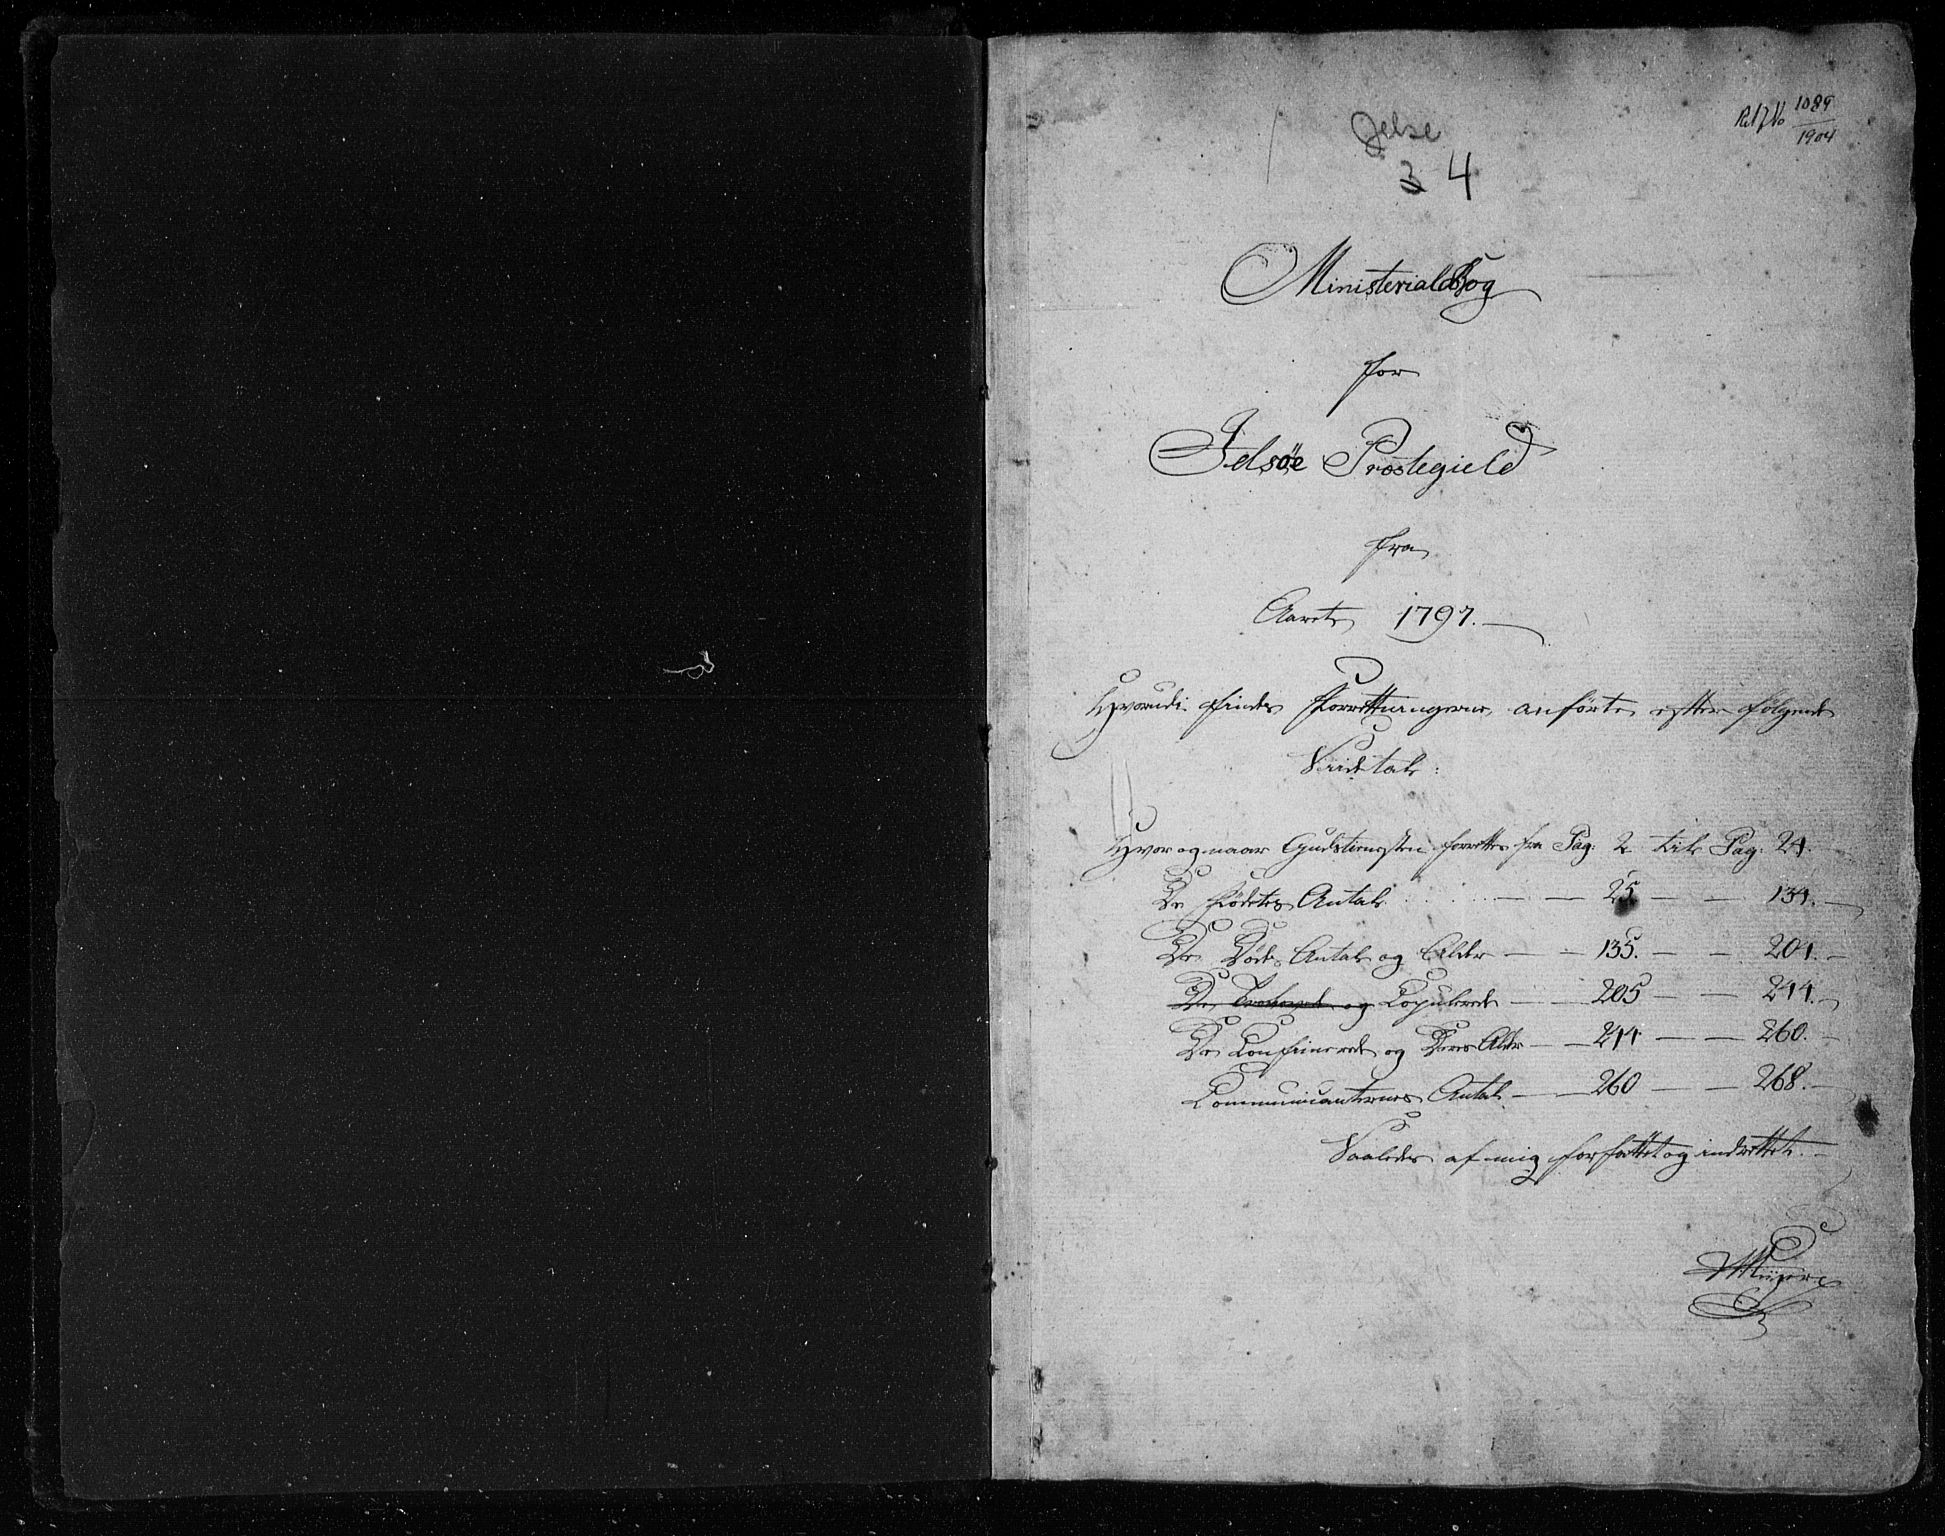 1089
1904
Jelse
3 4
Ministerial Bog
for
Jelsøe Præstegield
fra
Aaret 1797.
Hvorudi findes Forretningerne anførte efter følgende
Sidetal:
Hvor og naar Gudstienesten forrettes fra Pag: 2 til Pag: 24.
De Fødtes Antal 25 134.
De Dødes Antal og Alder 135. 204.
De Trolovede og Copulerede 205 244.
De Confirmerede og Deres Alder 244 260.
Communicanternes Antal 260 268.
Saaledes af mig forfattet og indrettet.